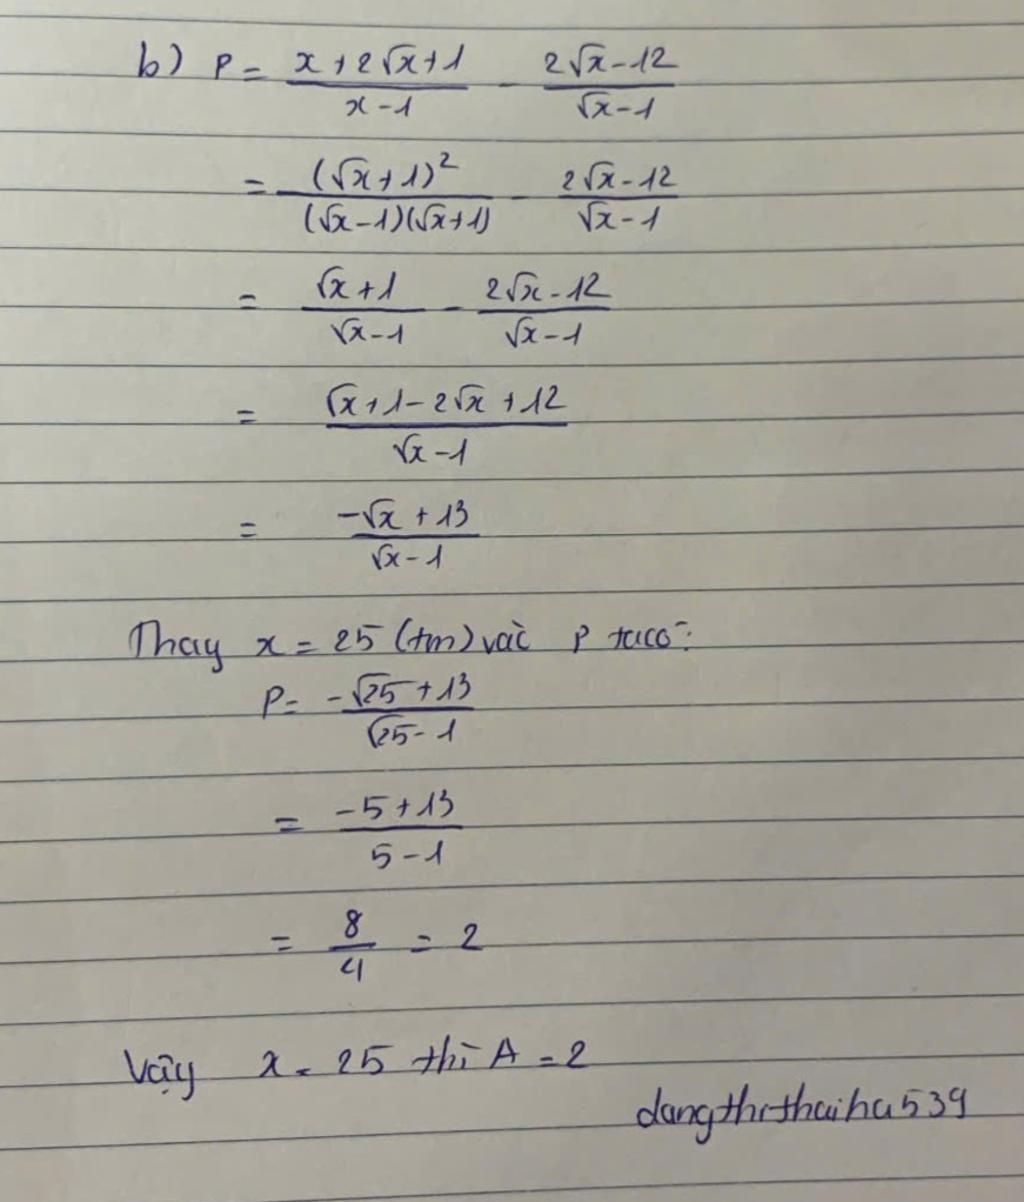 b) P = (x + 2√x + 1)/(x - 1) - (2√x - 12)/(√x - 1)
= (√x + 1)²/((√x - 1)(√x + 1)) - (2√x - 12)/(√x - 1)
= (√x + 1)/(√x - 1) - (2√x - 12)/(√x - 1)
= (√x + 1 - 2√x + 12)/(√x - 1)
= (-√x + 13)/(√x - 1)
Thay x = 25 (tm) vào P ta có:
P = (-√25 + 13)/(√25 - 1)
= (-5 + 13)/(5 - 1)
= 8/4 = 2
Vậy x = 25 thì A = 2
dangthithaiha539